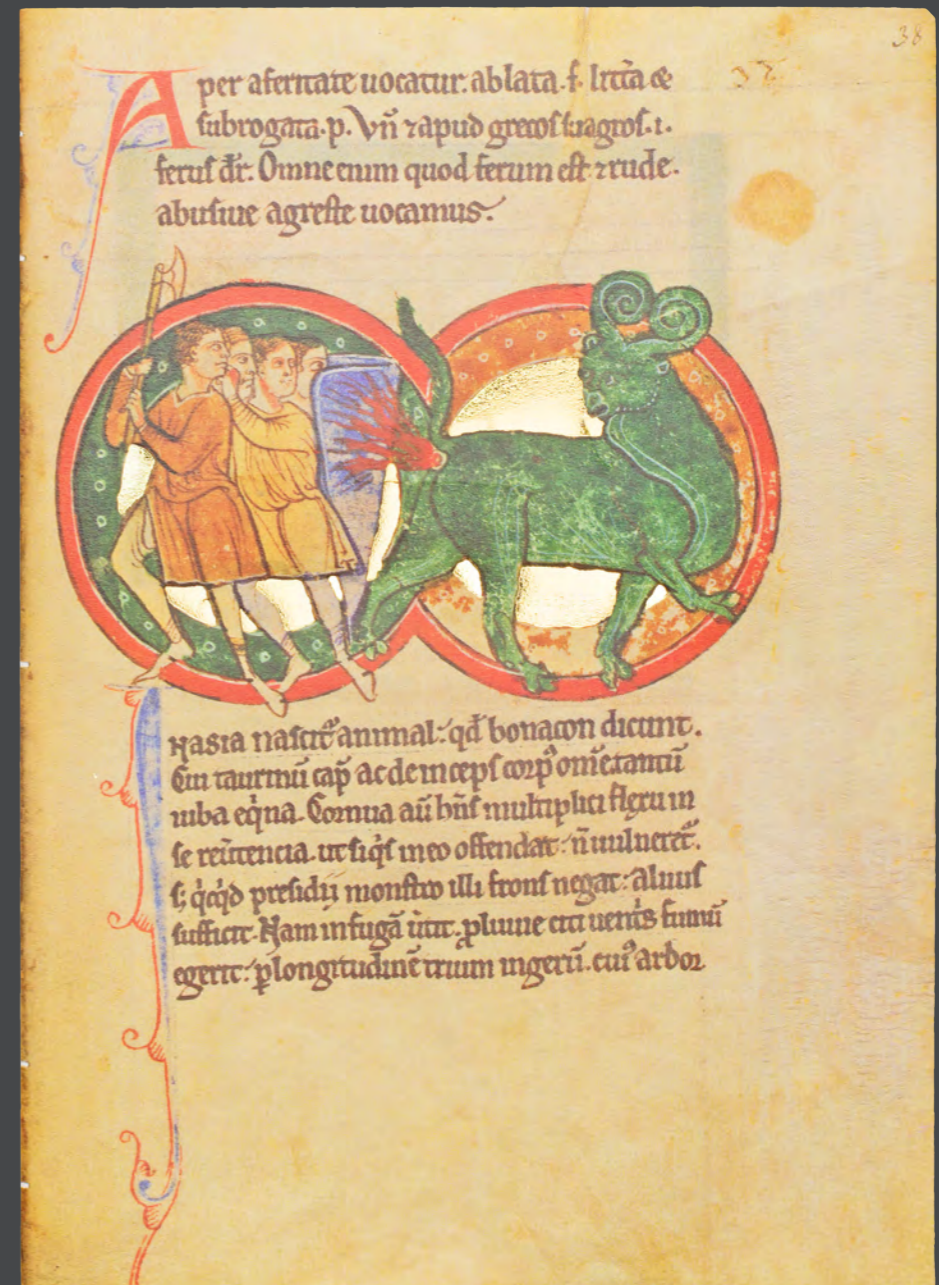 38
38
Aper a feritate uocatur. ablata .f. litt̄a ⁊
subrogata .p. Vn̄ ⁊ apud grecos suagros .i.
ferus dr̄. Omne enim quod ferum est ⁊ rude.
abusiue agreste uocamus.
IN asia nascit᷑ animal: qd̄ bonacon dicunt.
Cui taurinū cap̄ ac deinceps corp᷒ om̄e tantū
iuba eq̇na. Cornua aū hn̄s multiplici flexu in
se reūtencia. ut siq̇s in eo offendat: n̄ uulneret᷑.
s; q̇cq̇d presidij monstro illi frons negat: aluus
sufficit. Nam in fugā ūtit. ꝓluuie citi uent̾s fumū
egerit: ꝑ longitudinē trium ingerū. cui᷒ ardor